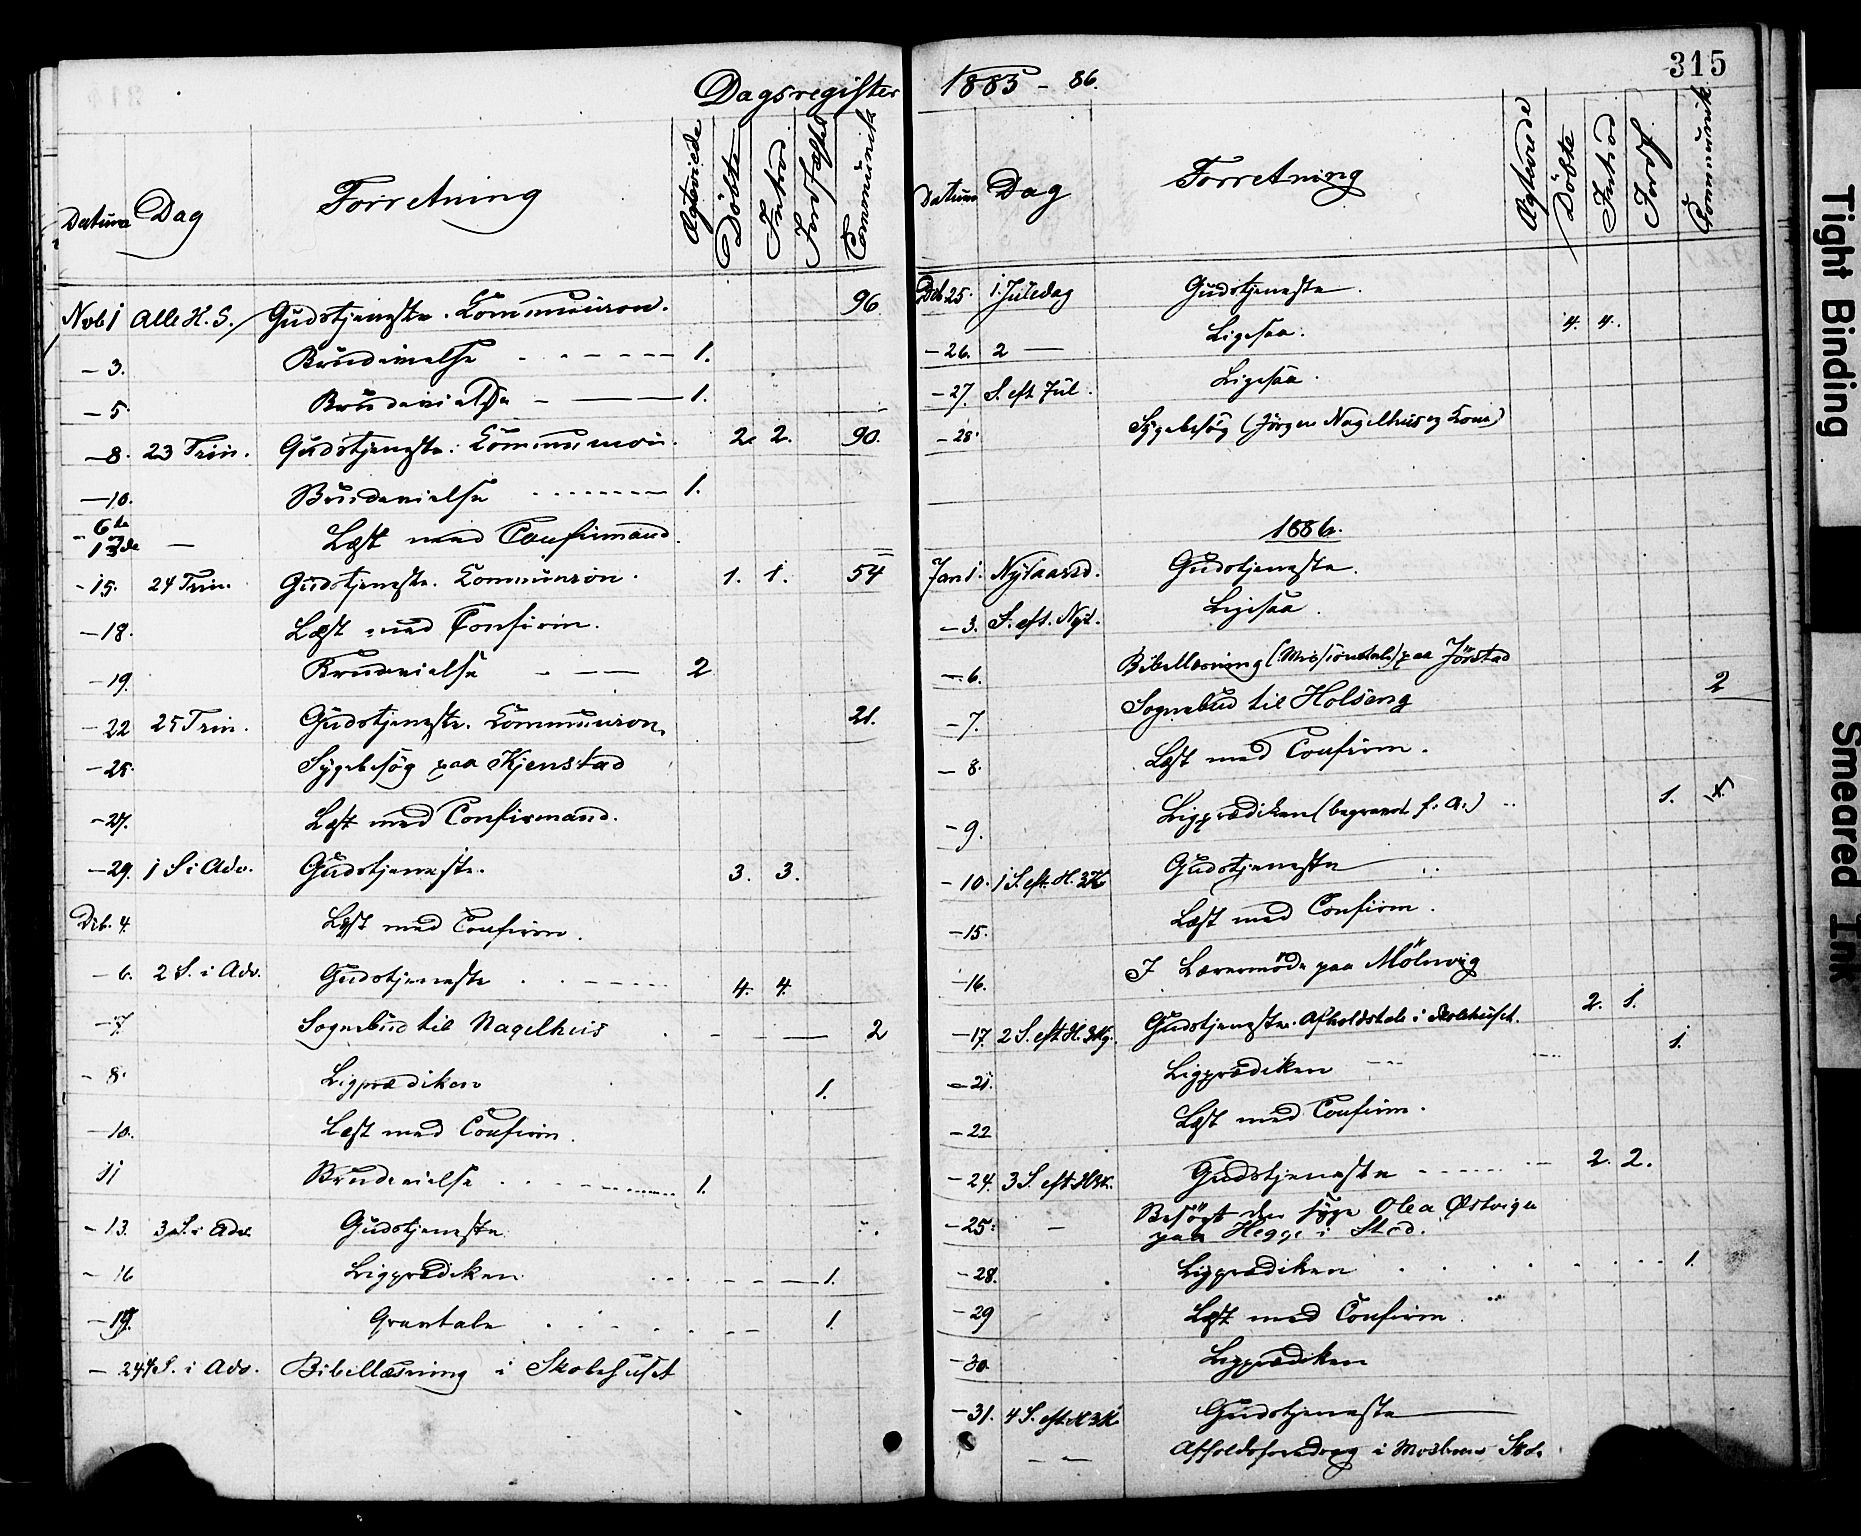 Dagsregister
Datum Dag Forretning Ægteviede Döbte Introd. Jordfæstede Communik.
Nvb 1 Alle H. S. Gudstjeneste. Kommunion. 96
- 3. Brudevielse 1.
- 5. Brudevielse 1.
- 8. 23 Trin. Gudstjeneste. Kommunion. 2. 2. 90.
- 10. Brudevielse 1.
- 6te og 13de — Læst med Confirmand.
- 15. 24 Trin. Gudstjeneste. Kommunion. 1. 1. 54
- 18. Læst med Confirm.
- 19. Brudevielse 2
- 22 25 Trin. Gudstjeneste. Kommunion. 21.
- 25. Sygebesög paa Kjenstad
- 27. Læst med Confirmand.
- 29. 1 S. i Adv. Gudstjeneste. 3. 3.
Dcb. 4. Læst med Confirm.
- 6. 2 S. i Adv. Gudstjeneste 4. 4.
- 7. Sognebud til Nagelhus 2
- 8. Ligprædiken 1.
- 10. Læst med Confirm.
11 Brudevielse 1.
- 13. 3 S. i Adv. Gudstjeneste
- 16 Ligprædiken 1.
- 19. Gravtale 1.
- 4 S. i Adv. Bibellæsning i Skolehuset
315
1885 - 86.
Datum Dag Forretning Ægteviede Döbte Introd Jordf. Communik
Dcb 25. 1. Juledag Gudstjeneste.
- 26. 2 — Ligesaa. 4. 4.
- 27. S. eft. Jul. Ligesaa.
- 28. Sygebesög (Jörgen Nagelhus og Kone)
1886.
Jan 1. Nytaarsd. Gudstjeneste.
- 3. S. eft. Nyt. Ligesaa.
- 6. Bibellæsning (Missionstale) paa Jörstad
- 7. Sognebud til Holseng 2
- 8. Læst med Confirm.
- 9. Ligprædiken (begravet f. A.) 1.
- 10. 1 S. eft. H. 3 K. Gudstjeneste
- 15. Læst med Confirm.
- 16. I Læreremöde paa Mölnvig
- 17. 2 S. eft H. 3 Kg. Gudstjeneste. Afholdstale i Skolehuset. 2. 1.
- 21. Ligprædiken 1.
- 22 Læst med Confirm.
- 24. 3 S. eft H3K. Gudstjeneste 2. 2.
- 25. — Besögt den syge Olea Østvigen
paa Hegge i Stod.
- 28. Ligprædiken 1.
- 29 Læst med Confirm.
- 30. Ligprædiken
- 31. 4 S. eft. H3K Gudstjeneste
— — Afholdsforedrag i Skole
Tight Binding
Smeared Ink